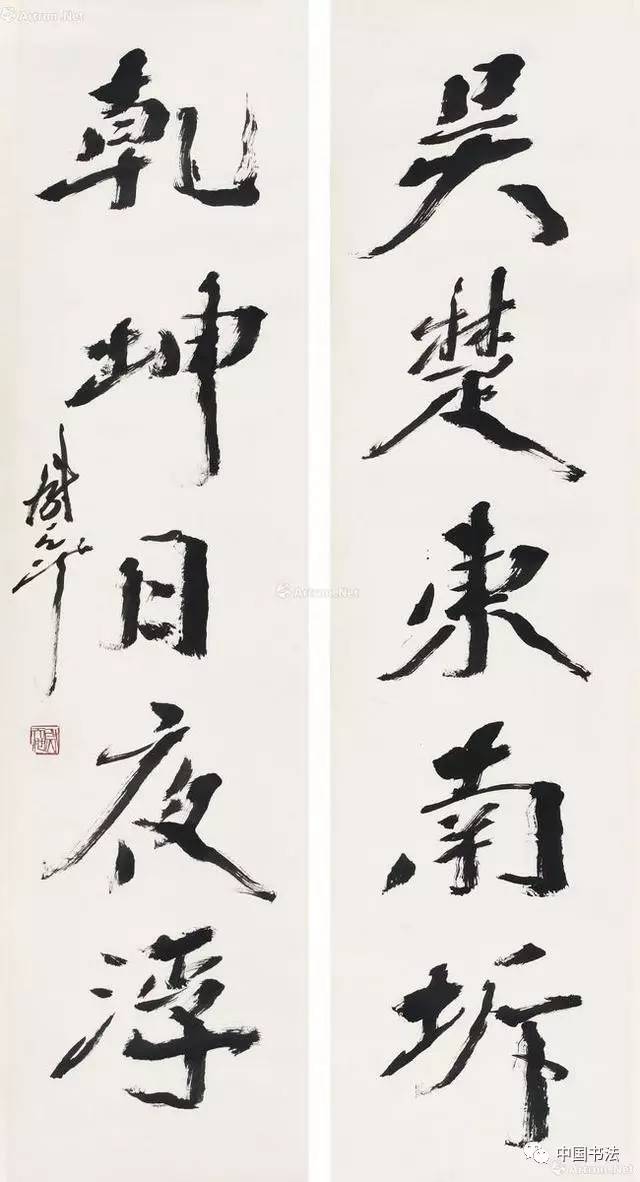 吴楚东南坼
乾坤日夜浮
Artron.Net
Artron.Net
中国书法